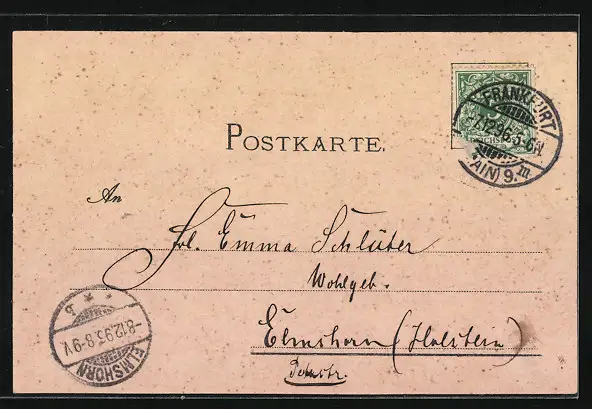 POSTKARTE.
FRANKFURT
7.12.96.5-6N.
(MAIN) 9. m
An
Frl. Emma Schlüter
Wohlgeb.
Elmshorn (Holstein)
ELMSHORN
8.12.9 8-9V.